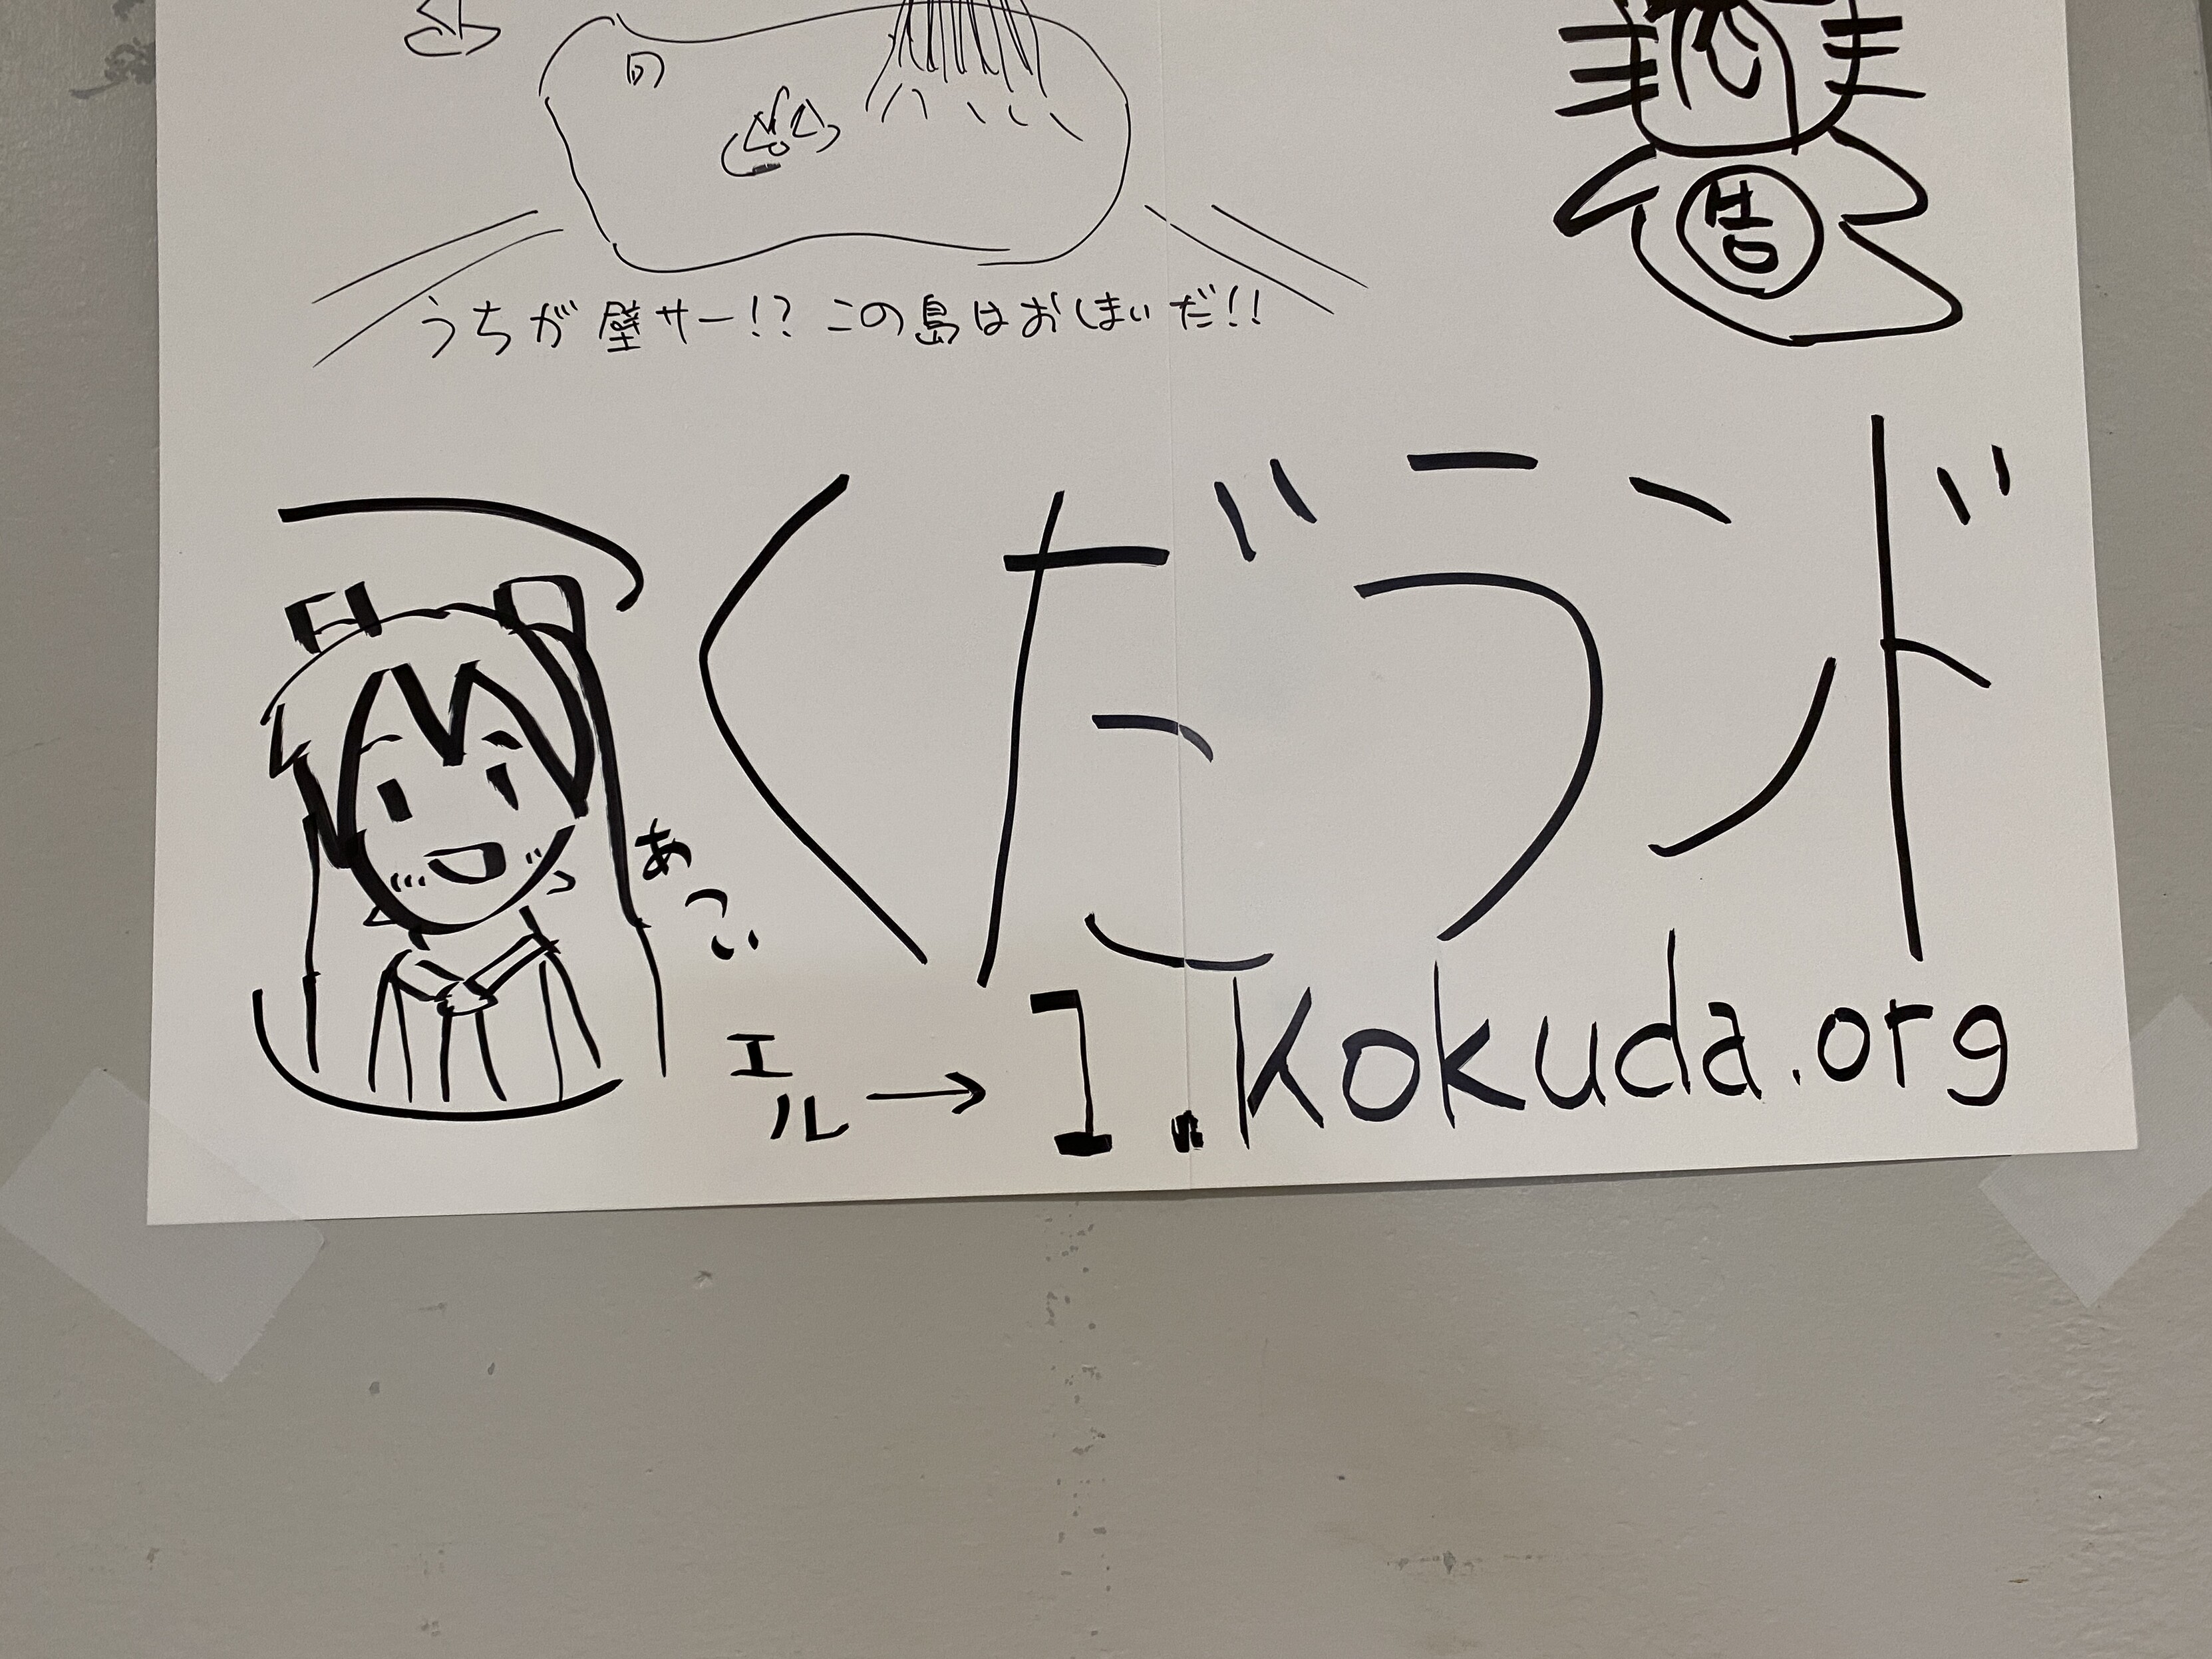 うちが壁サー!? この島はおしまいだ!!
告
くだランド
あつい
エル→l.kokuda.org